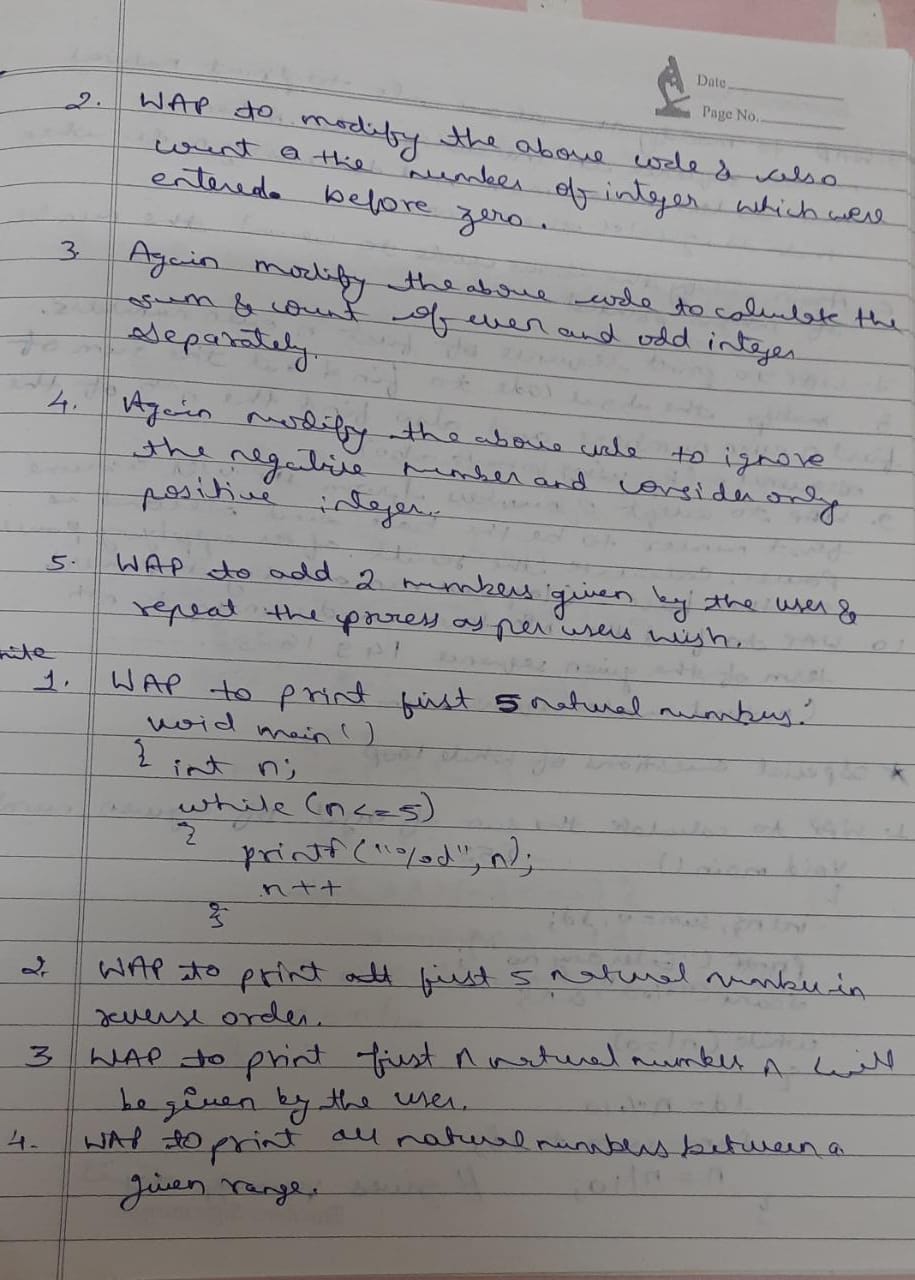 Date
Page No.
2. WAP to modify the above code & also
count a the number of integer which were
entered before zero.
3. Again modify the above code to calculate the
sum & count of even and odd integer
separately.
4. Again modify the above code to ignore
the negative number and consider only
positive integer.
5. WAP to add 2 numbers given by the user &
repeat the process as per users wish.
1. WAP to print first 5 natural numbers.
void main()
{ int n;
while (n<=5)
{
printf("%d", n);
n++
}
2. WAP to print first 5 natural number in
reverse order.
3 WAP to print first n natural number n will
be given by the user.
4. WAP to print all natural numbers between a
given range.